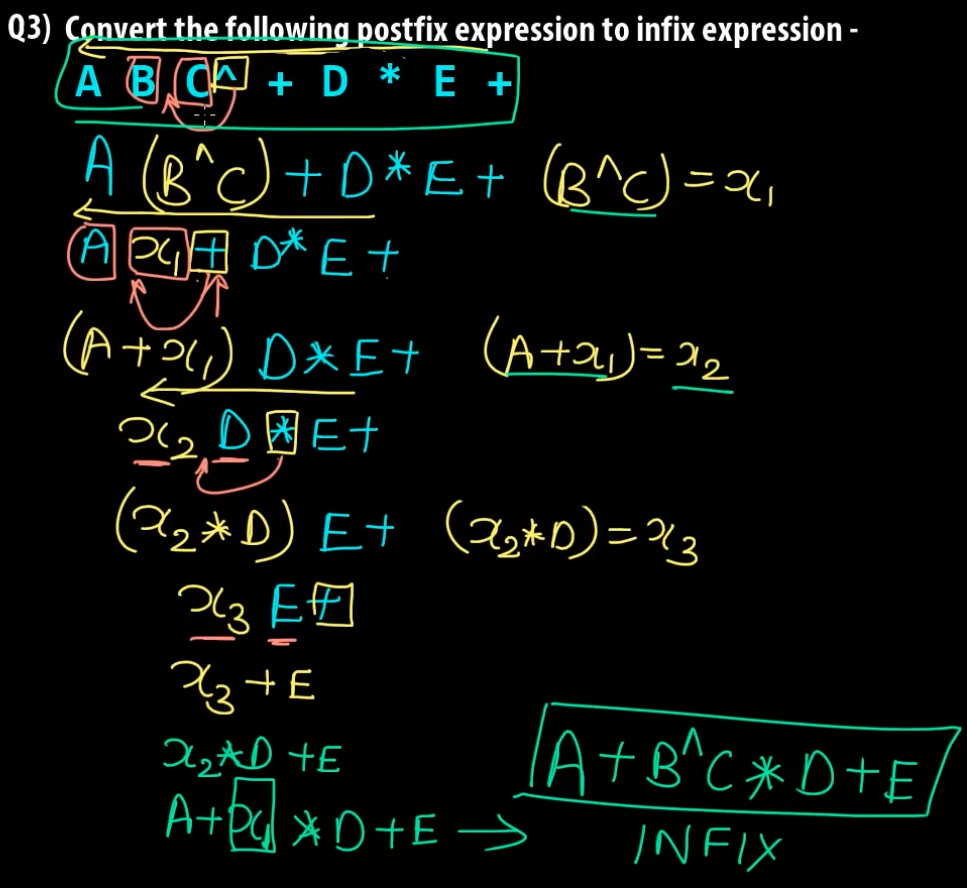 Q3) Convert the following postfix expression to infix expression -
A B C ^ + D * E +
A (B^C) + D * E + (B^C) = x₁
A x₁ + D * E +
(A + x₁) D * E + (A + x₁) = x₂
x₂ D * E +
(x₂ * D) E + (x₂ * D) = x₃
x₃ E +
x₃ + E
x₂ * D + E
A + x₁ * D + E → A + B^C * D + E
INFIX